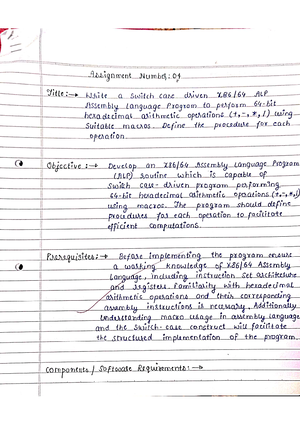 Assignment Number: 04
Title:→ Write a Switch case driven X86/64 ALP
Assembly Language Program to perform 64-bit
hexadecimal arithmetic operations (+,-,*,/) using
Suitable macros. Define the procedure for each
operation.
Objective :→ Develop an X86/64 Assembly Language Program
(ALP) Routine which is capable of
Switch case-driven program performing
64-bit hexadecimal arithmetic operations (+,-,*,/)
using macros. The program should define
procedures for each operation to facilitate
efficient computations.
Prerequisites:→ Before implementing the program ensure
a working knowledge of X86/64 Assembly
Language, including instruction set architecture
and registers. Familiarity with hexadecimal
arithmetic operations and their corresponding
assembly instructions is necessary. Additionally
Understanding macro usage in assembly language
and the Switch-case construct will facilitate
the structured implementation of the program.
Components / Software Requirements:→